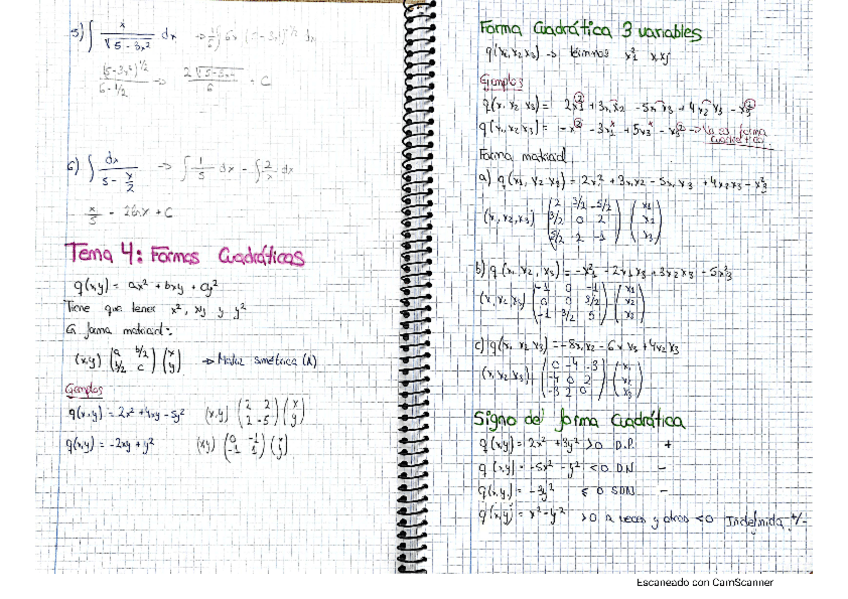 5) ∫ x / √(5 - 3x²) dx
(5-3x²)^1/2 / 6·1/2 → 2√(5-3x²) / 6 + C
6) ∫ dx / (5 - x/2) → ∫ 1/5 dx - ∫ 2/x dx
x/5 - 2lnx + C
Tema 4: Formas Cuadráticas
q(x,y) = ax² + bxy + cy²
Tiene que tener x², xy y y²
La forma matricial:
(x,y) (a b/2; b/2 c) (x; y) → Matriz simétrica (A)
Ejemplos
q(x,y) = 2x² + 4xy - 5y² (x,y) (2 2; 2 -5) (x; y)
q(x,y) = -2xy + y² (xy) (0 -1; -1 1) (x; y)
Forma Cuadrática 3 variables
q(x1,x2,x3) → términos x²1 xixj
Ejemplos
q(x1 x2 x3) = 2x²1 + 3x1x2 - 5x1x3 + 4x2x3 - x²3
Forma matricial
a) q(x1, x2 x3) = 2x1² + 3x1x2 - 5x1x3 + 4x2x3 - x²3
(x1,x2,x3) (2 3/2 -5/2; 3/2 0 2; 5/2 2 -1) (x1; x2; x3)
b) q(x1, x2, x3) = -x²1 - 2x1x3 + 3x2x3 - 5x²3
(x1x2x3) (-1 0 -1; 0 0 3/2; -1 3/2 5) (x1; x2; x3)
c) q(x1, x2 x3) = -8x1x2 - 6x1x3 + 4x2x3
(x1,x2x3) (0 -4 -3; -4 0 2; -3 2 0) (x1; x2; x3)
Signo de forma Cuadrática
q(x,y) = 2x² + 3y² > 0 D.P. +
q(x,y) = -5x² - y² < 0 D.N -
q(x,y) = -3y² ≤ 0 S.D.N -
q(x,y) = x² - y² > 0 a veces y otros < 0 Indefinida +/-
Escaneado con CamScanner